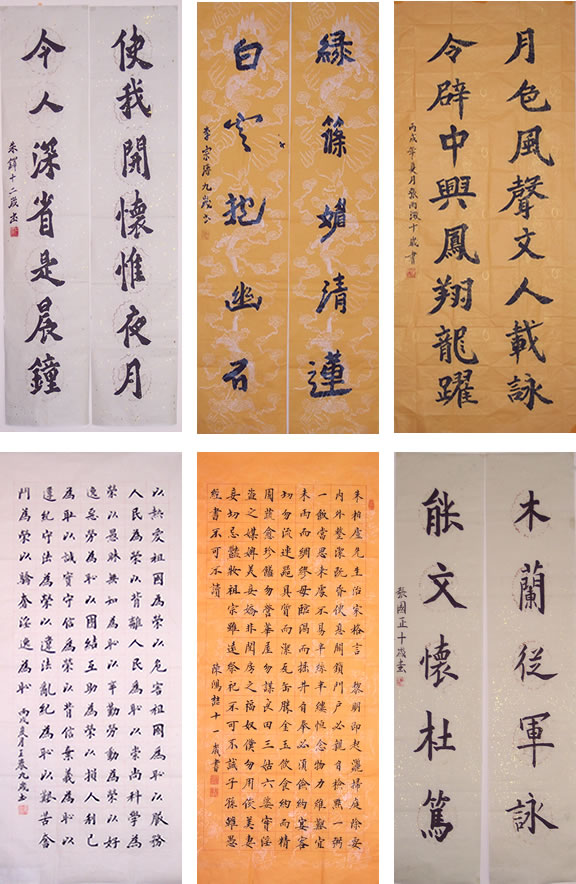 使我開懷惟夜月
今人深省是晨鐘
朱鐸十二歲書
綠篠媚清蓮
白雲抱幽石
李宗九歲書
月色風聲文人載詠
令辟中興鳳翔龍躍
丙戌年夏月張雨淑十歲書
以熱愛祖國為榮以危害祖國為恥以服務
人民為榮以背離人民為恥以崇尚科學為
榮以愚昧無知為恥以辛勤勞動為榮以好
逸惡勞為恥以團結互助為榮以損人利己
為恥以誠實守信為榮以背信棄義為恥以
遵紀守法為榮以違法亂紀為恥以艱苦奮
鬥為榮以驕奢淫逸為恥
丙戌夏月王展九歲書
朱柏廬先生治家格言 黎明即起灑掃庭除要
內外整潔既昏便息關鎖門戶必親自檢點一粥
一飯當思來處不易半絲半縷恆念物力維艱宜
未雨而綢繆毋臨渴而掘井自奉必須儉約宴客
切勿流連器具質而潔瓦缶勝金玉飲食約而精
園蔬愈珍饈勿營華屋勿謀良田三姑六婆實淫
盜之媒婢美妾嬌非閨房之福奴僕勿用俊美妻
妾切忌豔妝祖宗雖遠祭祀不可不誠子孫雖愚
經書不可不讀
陳鴻喆十一歲書
木蘭從軍詠
能文懷杜篤
張國正十歲書